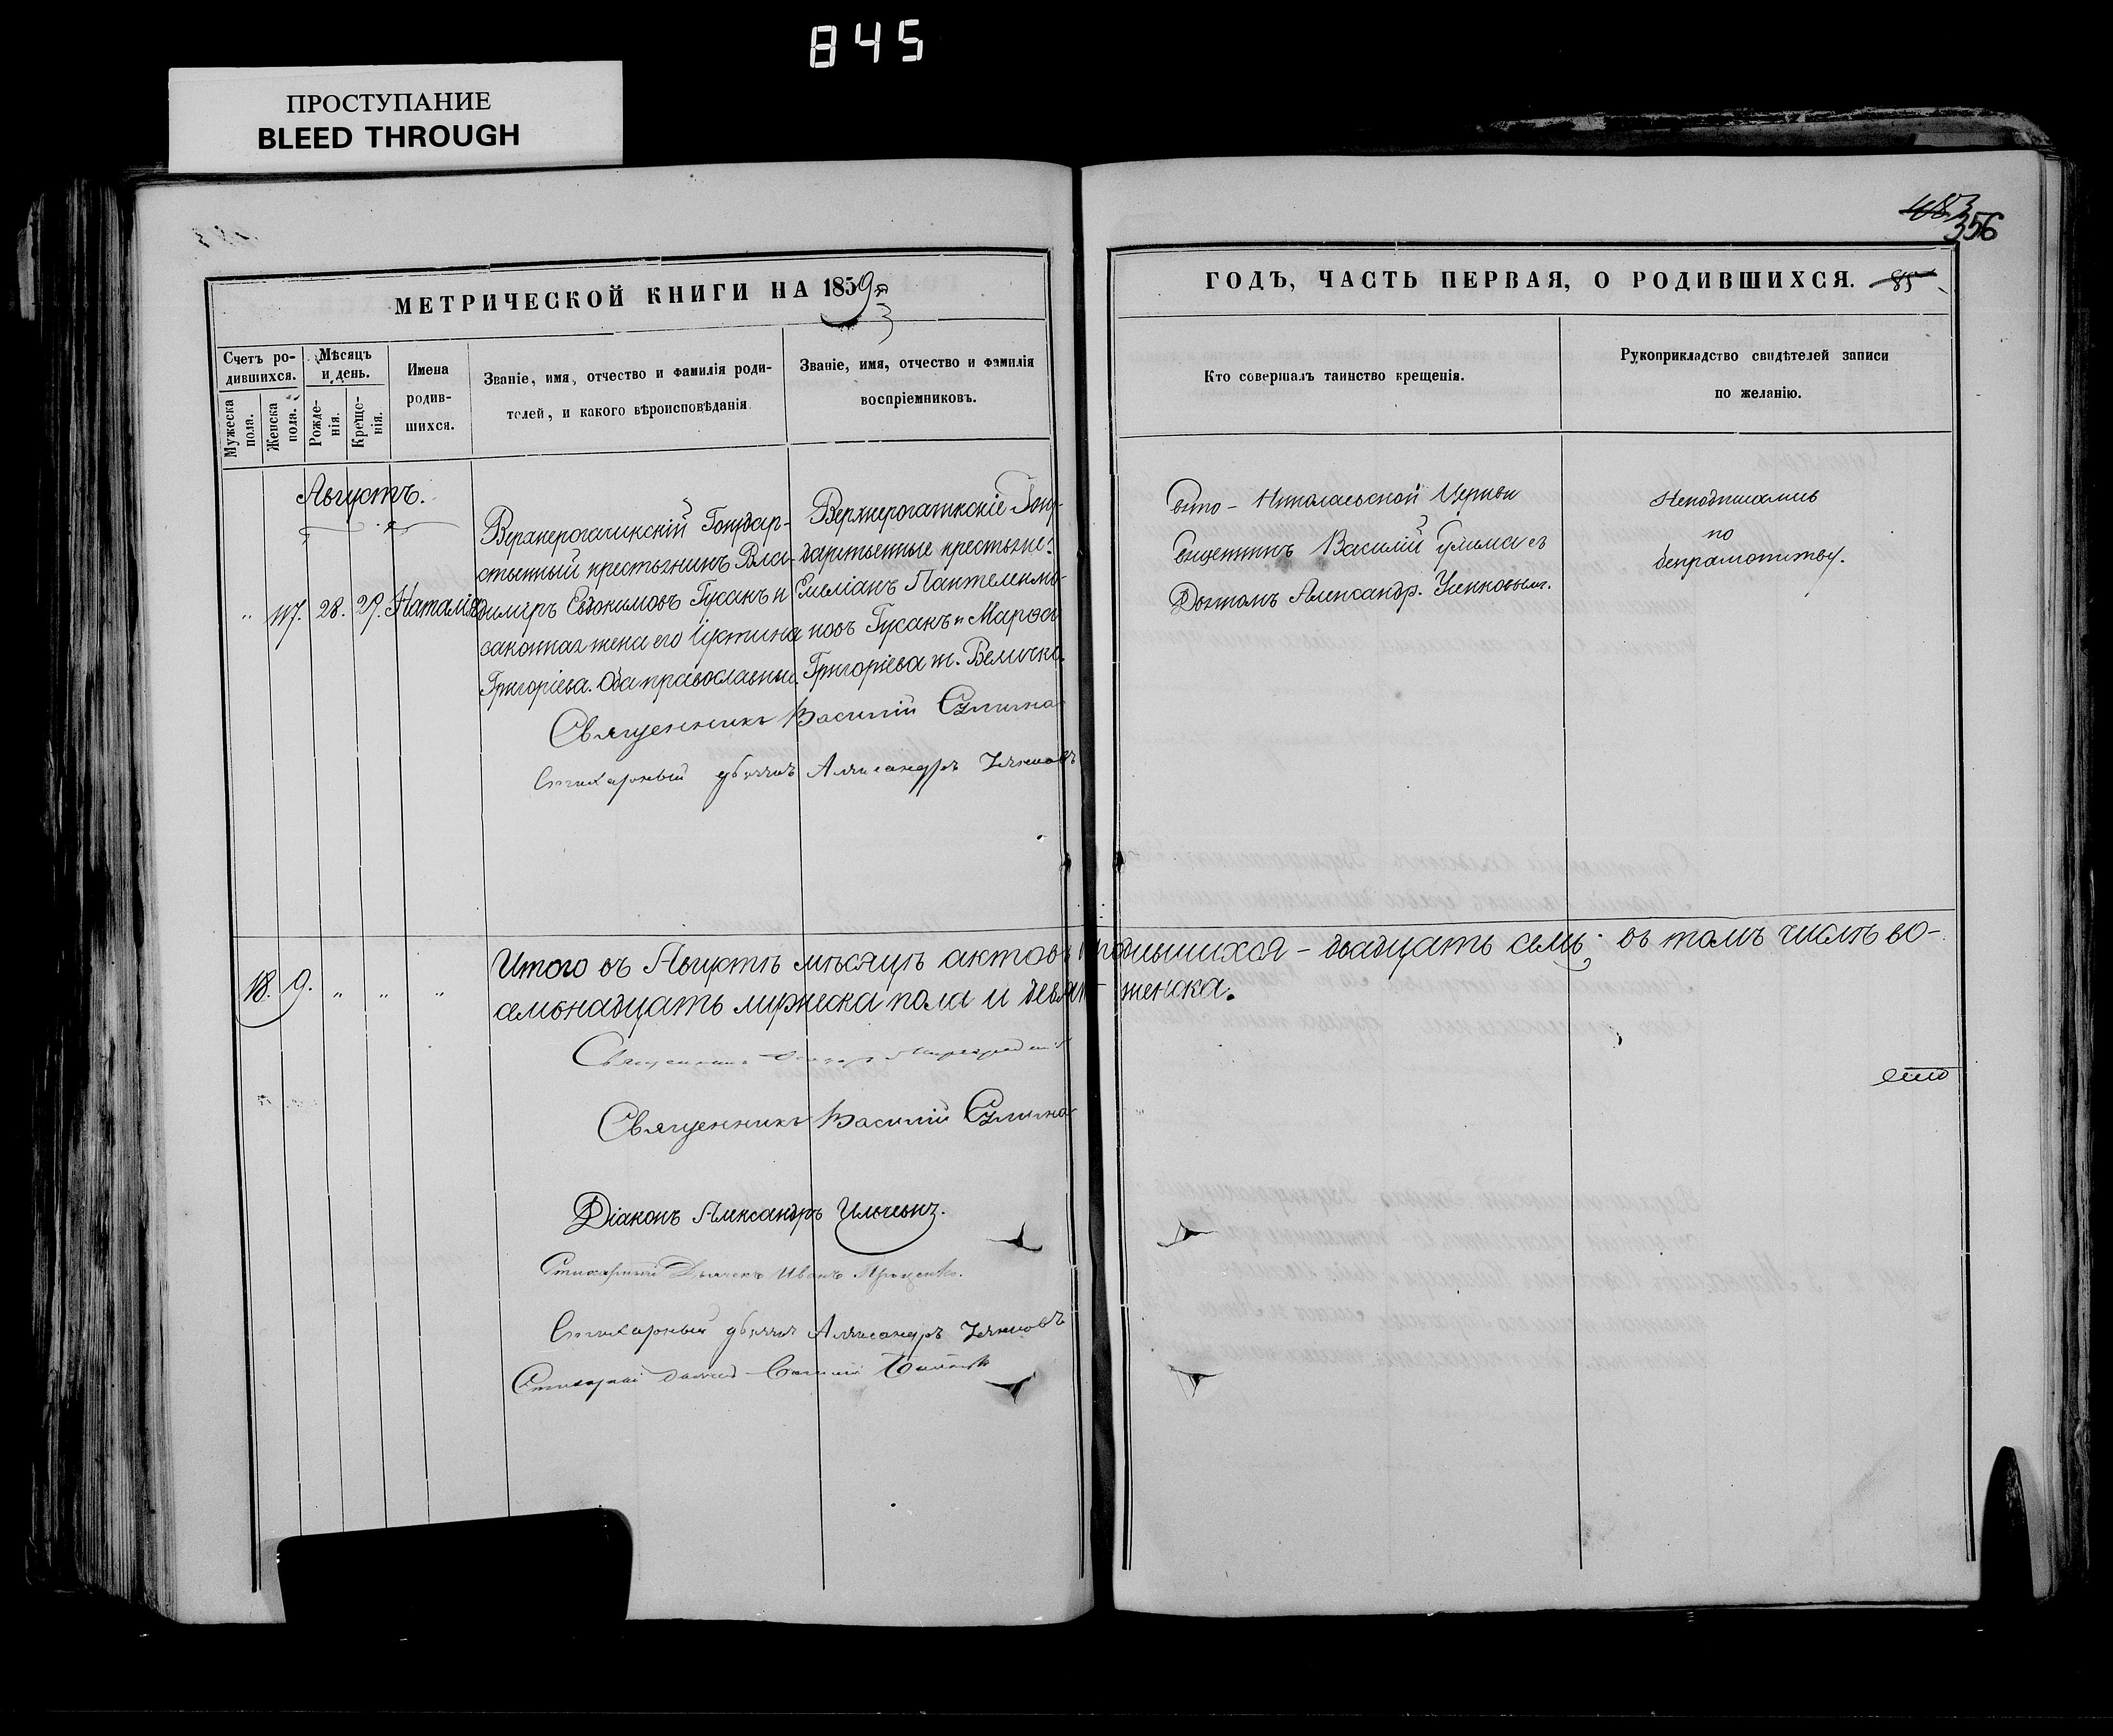 845
ПРОСТУПАНИЕ
BLEED THROUGH
483
356
МЕТРИЧЕСКОЙ КНИГИ НА 1859
ГОДЪ, ЧАСТЬ ПЕРВАЯ, О РОДИВШИХСЯ. 85
Счетъ родившихся.
Мужеска пола.
Женска пола.
Мѣсяцъ и день.
Рожденія.
Крещенія.
Имена родившихся.
Званіе, имя, отчество и фамилія родителей, и какого вѣроисповѣданія
Званіе, имя, отчество и фамилія воспріемниковъ.
Кто совершалъ таинство крещенія.
Рукоприкладство свидѣтелей записи по желанію.
Августъ.
" 117. 28. 29. Наталія
Верхнерогачикскій Государ-
ственный крестьянинъ Вла-
димиръ Евфимовъ Гусакъ и
законная жена его Іустина
Григоріева. Оба православные.
Верхнерогачикскіе Госу-
дарственные крестьяне:
Емеліанъ Пантелеимо-
новъ Гусакъ и Марѳа
Григоріева ж. Величко.
Свято-Николаевской Церкви
Священникъ Василій Сулима съ
Дьячкомъ Александр.
Неподписались
по
безграмотству.
Священникъ Василій Сулима
Стихарный дьячекъ Александръ
18. 9. " " "
Итого въ Августѣ мѣсяцѣ актовъ родившихся – двадцать семь: въ томъ числѣ во-
семьнадцать мужеска пола и девять женска.
Священникъ
Священникъ Василій Сулима
Діаконъ Александръ
Стихарный Дьячекъ Иванъ Проценко.
Стихарный дьячекъ Александръ
Стихарный дьячекъ